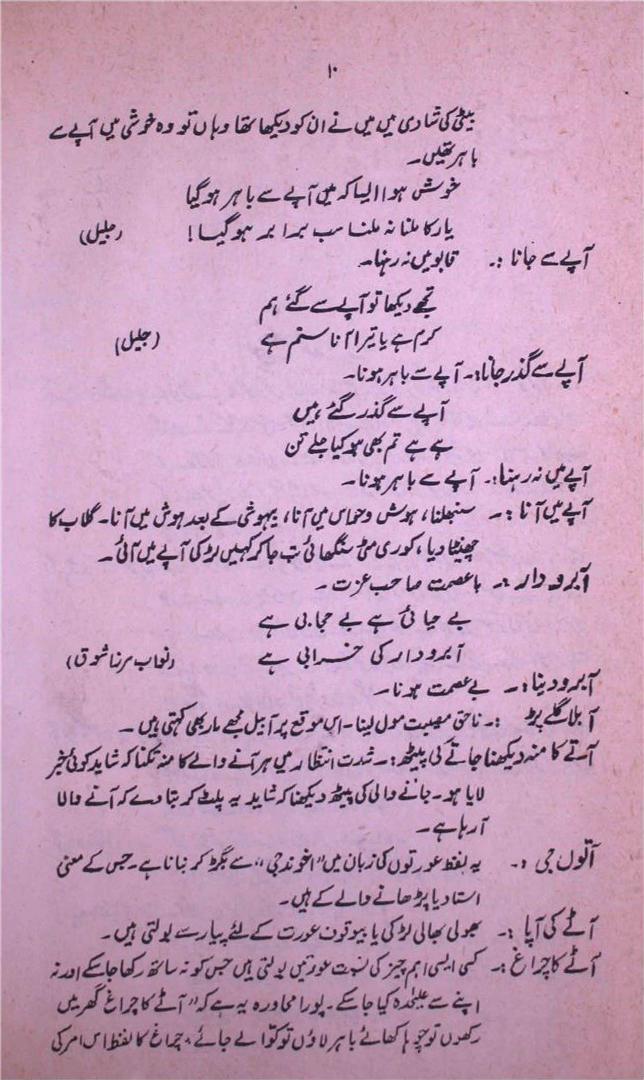 ۱۰
بیٹی کی شادی میں میں نے ان کو دیکھا تھا وہاں تو وہ خوشی میں آپے سے
باہر تھیں۔
خوش ہوا ایسا کہ میں آپے سے باہر ہوگیا
یار کا ملنا نہ ملنا سب برابر ہوگیا! (جلیل)
آپے سے جانا :۔ قابو میں نہ رہنا۔
تجھے دیکھا تو آپے سے گئے ہم
کرم ہے یا تیرا آنا ستم ہے (جلیل)
آپے سے گذر جانا:۔ آپے سے باہر ہونا۔
آپے سے گذر گئے ہیں
ہے ہے تم بھی ہو کیا جلے تن
آپے میں نہ رہنا:۔ آپے سے باہر ہونا۔
آپے میں آنا :۔ سنبھلنا، ہوش وحواس میں آنا، بیہوشی کے بعد ہوش میں آنا۔ گلاب کا
چھینٹا دیا، کوری مٹی سنگھائی تب جا کر کہیں لڑکی آپے میں آئی۔
آبرو دار :۔ با عصمت صاحب عزت ۔
بے حیائی ہے بے حجابی ہے
آبرودار کی خرابی ہے (نواب مرزا شوق)
آبرو دینا:۔ بے عصمت ہونا۔
آ بلا گلے پڑ :۔ ناحق مصیبت مول لینا۔ اس موقع پر آ بیل مجھے مار بھی کہتی ہیں ۔
آتے کا منہ دیکھنا جاتے کی پیٹھ:۔ شدت انتظار میں ہر آنے والے کا منہ تکنا کہ شاید کوئی خبر
لایا ہو۔ جانے والی کی پیٹھ دیکھنا کہ شاید یہ پلٹ کر بتا دے کہ آنے والا
آرہا ہے۔
آتول جی :۔ یہ لفظ عورتوں کی زبان میں "اخوند جی" سے بگڑ کر بنا ہے۔ جس کے معنی
استاد یا پڑھانے والے کے ہیں۔
آٹے کی آپا :۔ بھولی بھالی لڑکی یا بیوقوف عورت کے لئے پیار سے بولتی ہیں۔
آٹے کا چراغ :۔ کسی ایسی اہم چیز کی نسبت عورتیں بولتی ہیں جس کو نہ ساتھ رکھا جاسکے اور نہ
اپنے سے علیحدہ کیا جاسکے۔ پورا محاورہ یہ ہے کہ "آٹے کا چراغ گھر میں
رکھوں تو چوہا کھائے باہر لاؤں تو کوّا لے جائے، چراغ کا لفظ اس امر کی